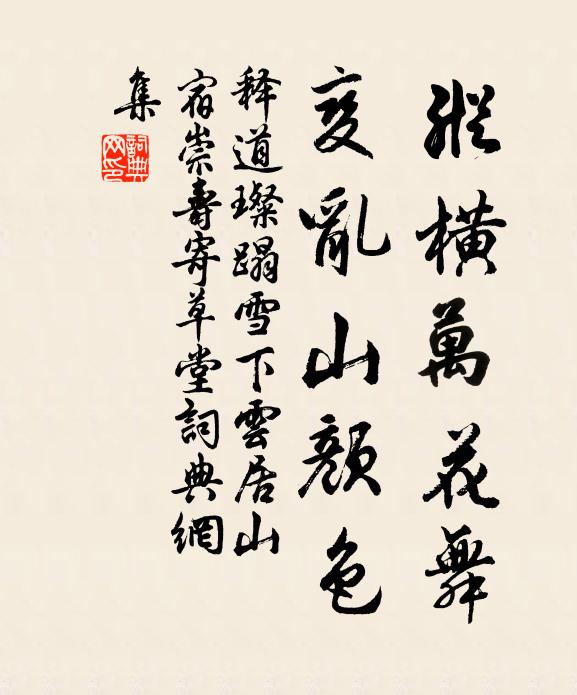 縱橫萬花舞
變亂山顏色
释道璨蹋雪下雲居山
宿崇壽寄草堂詞典網
集
詞典网印